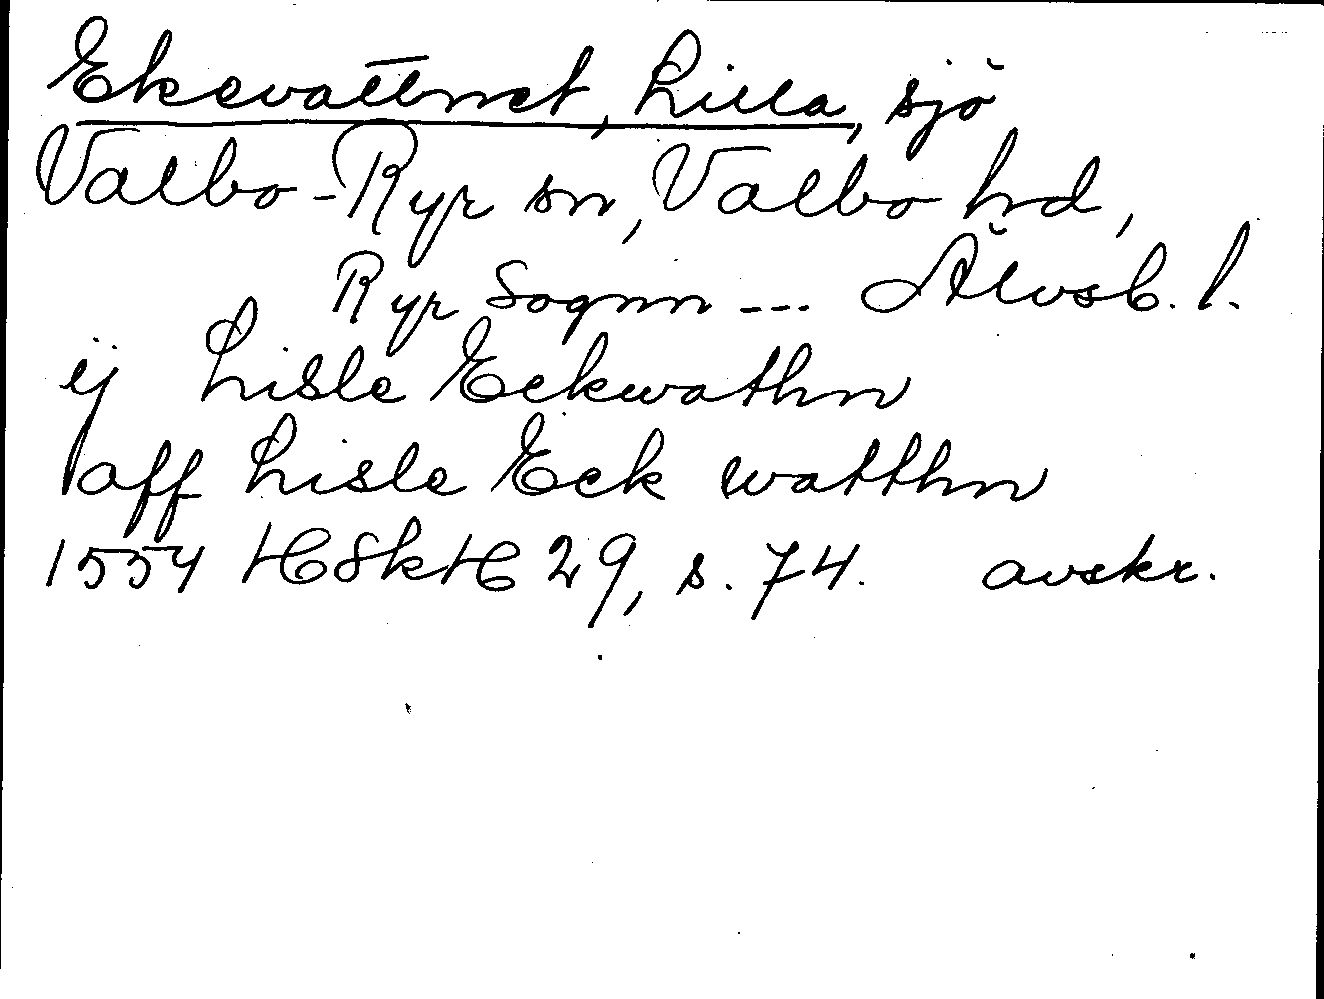 Ekevattnet, Lilla, sjö
Valbo-Ryr sn, Valbo hd,
Ryr Sognn --- Älvsb. l.
ij Lisle Eckwathn
aff Lisle Eck watthn
1554 HSkH 29, s. 74. avskr.